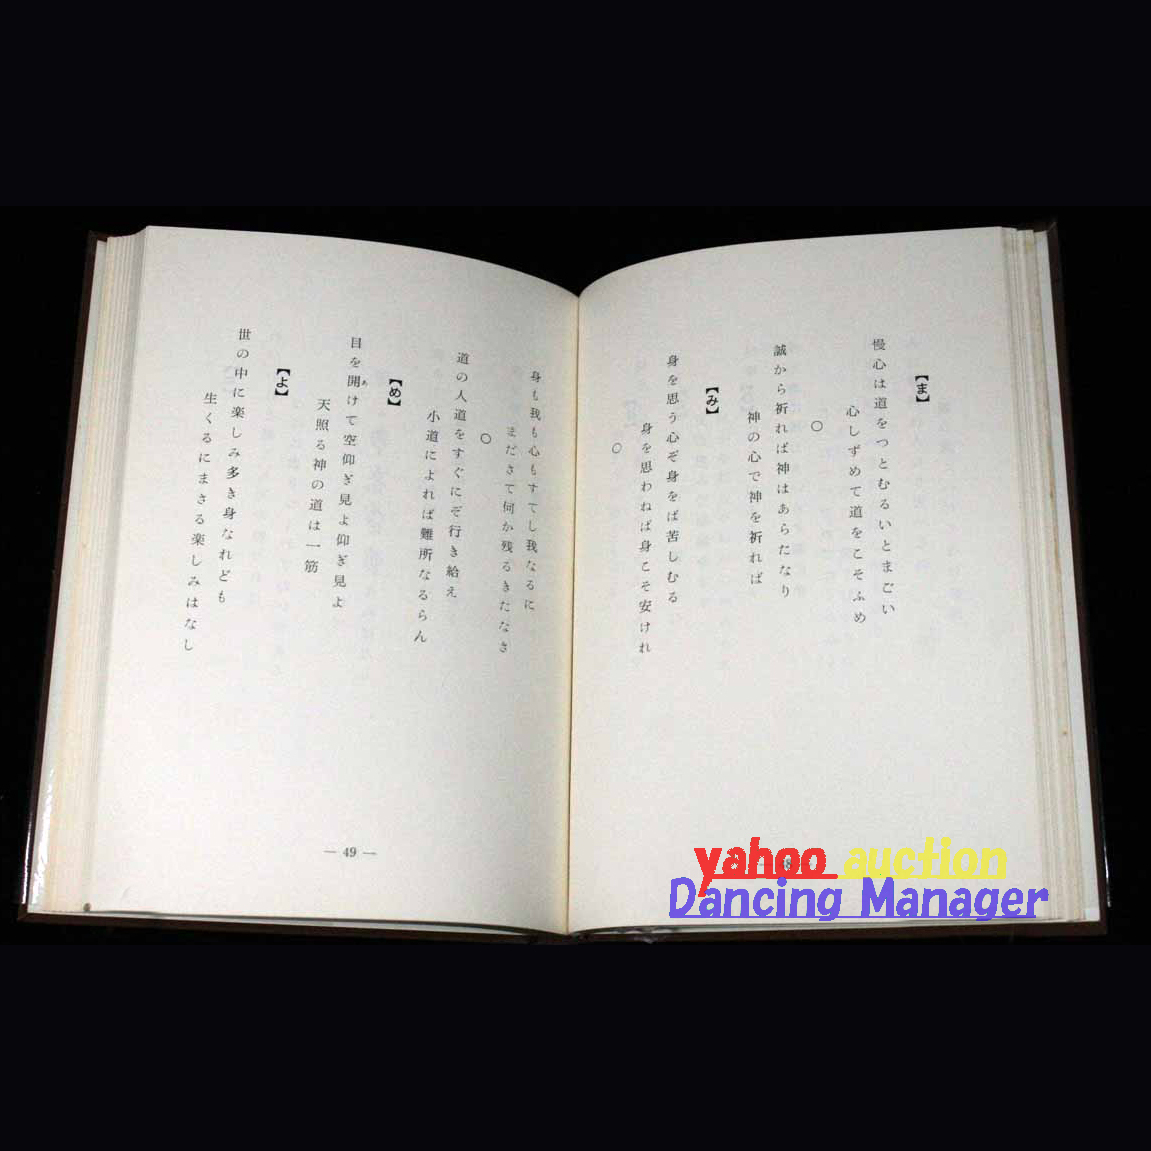 【ま】
慢心は道をつとむるいとまごい
心しずめて道をこそふめ
○
誠から祈れば神はあらたなり
神の心で神を祈れば
【み】
身を思う心ぞ身をば苦しむる
身を思わねば身こそ安けれ
○
身も我も心もすてし我なるに
まださて何か残るきたなさ
○
道の人道をすぐにぞ行き給え
小道によれば難所なるらん
【め】
目を開けて空仰ぎ見よ仰ぎ見よ
あ
天照る神の道は一筋
【よ】
世の中に楽しみ多き身なれども
生くるにまさる楽しみはなし
— 49 —
yahoo auction
Dancing Manager